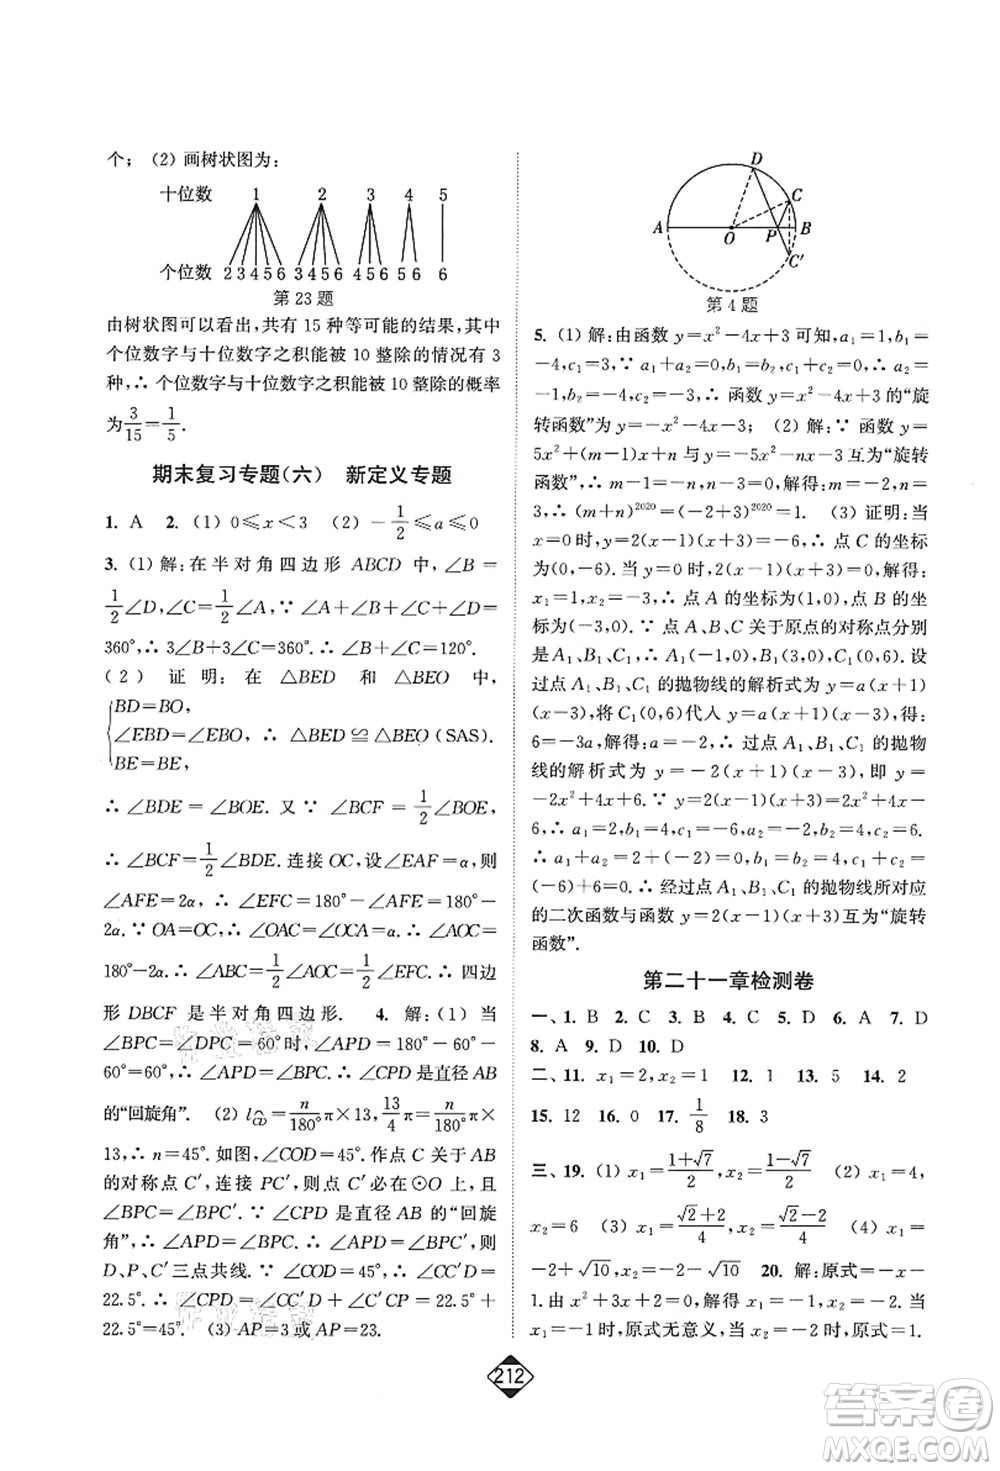 个；(2) 画树状图为：
十位数 1 2 3 4 5
个位数 2 3 4 5 6 3 4 5 6 4 5 6 5 6 6
第 23 题
由树状图可以看出，共有 15 种等可能的结果，其中
个位数字与十位数字之积能被 10 整除的情况有 3
种，∴ 个位数字与十位数字之积能被 10 整除的概率
为3/15＝1/5.
期末复习专题(六) 新定义专题
1. A 2. (1) 0≤x＜3 (2) －1/2≤a≤0
3. (1) 解：在半对角四边形 ABCD 中，∠B＝
1/2∠D，∠C＝1/2∠A，∵ ∠A＋∠B＋∠C＋∠D＝
360°，∴ 3∠B＋3∠C＝360°. ∴ ∠B＋∠C＝120°.
(2) 证明：在 △BED 和 △BEO 中，
BD＝BO，
∠EBD＝∠EBO，∴ △BED≌△BEO (SAS).
BE＝BE，
∴ ∠BDE＝∠BOE. 又 ∵ ∠BCF＝1/2∠BOE，
∴ ∠BCF＝1/2∠BDE. 连接 OC，设∠EAF＝α，则
∠AFE＝2α，∴ ∠EFC＝180°－∠AFE＝180°－
2α. ∵ OA＝OC，∴ ∠OAC＝∠OCA＝α. ∴ ∠AOC＝
180°－2α. ∴ ∠ABC＝1/2∠AOC＝∠EFC. ∴ 四边
形 DBCF 是半对角四边形. 4. 解：(1) 当
∠BPC＝∠DPC＝60°时，∠APD＝180°－60°－
60°＝60°，∴ ∠APD＝∠BPC. ∴ ∠CPD 是直径 AB
的“回旋角”. (2) l⌒CD＝n/180°π×13，13/4π＝n/180°π×
13，∴ n＝45°. ∴ ∠COD＝45°. 作点 C 关于 AB
的对称点 C′，连接 PC′，则点 C′在⊙O 上，且
∠BPC＝∠BPC′. ∵ ∠CPD 是直径 AB 的“回旋
角”，∴ ∠APD＝∠BPC. ∴ ∠APD＝∠BPC′.
D、P、C′三点共线. ∵ ∠COD＝45°，∴ ∠DC′C＝
22.5°. ∴ ∠CPD ＝ ∠DC′C ＋ ∠C′CP ＝ 22.5°＋
22.5°＝45°. (3) AP＝3 或 AP＝23.
D
C
A
O
P
B
C′
第 4 题
5. (1) 解：由函数 y＝x²－4x＋3 可知，a₁＝1，b₁＝
－4，c₁＝3，∵ a₁＋a₂＝0，b₁＝b₂，c₁＋c₂＝0，∴ a₂＝
－1，b₂＝－4，c₂＝－3，∴ 函数 y＝x²－4x＋3 的“旋
转函数”为 y＝－x²－4x－3； (2) 解：∵ 函数 y＝
5x²＋(m－1)x＋n 与 y＝－5x²－nx－3 互为“旋转
函数”，∴ m－1＝－n，n－3＝0，解得：m＝－2，n＝
3，∴ (m＋n)²⁰²⁰＝(－2＋3)²⁰²⁰＝1. (3) 证明：当
x＝0时，y＝2(x－1)(x＋3)＝－6，∴ 点 C 的坐标
为(0，－6). 当 y＝0 时，2(x－1)(x＋3)＝0，解得：
x₁＝1，x₂＝－3，∴ 点 A 的坐标为(1,0)，点 B 的坐
标为(－3,0). ∵ 点 A、B、C 关于原点的对称点分别
是 A₁、B₁、C₁，∴ A₁(－1,0)，B₁(3,0)，C₁(0,6). 设
过点 A₁、B₁、C₁ 的抛物线的解析式为 y＝a(x＋1)
(x－3)，将 C₁(0,6)代入 y＝a(x＋1)(x－3)，得：
6＝－3a，解得：a＝－2，∴ 过点 A₁、B₁、C₁ 的抛物
线的解析式为 y＝－2(x＋1)(x－3)，即 y＝
－2x²＋4x＋6. ∵ y＝2(x－1)(x＋3)＝2x²＋4x－
6，∴ a₁＝2，b₁＝4，c₁＝－6，a₂＝－2，b₂＝4，c₂＝6.
∴ a₁＋a₂＝2＋(－2)＝0，b₁＝b₂＝4，c₁＋c₂＝
(－6)＋6＝0，∴ 经过点 A₁、B₁、C₁ 的抛物线所对应
的二次函数与函数 y＝2(x－1)(x＋3)互为“旋转
函数”.
第二十一章检测卷
一、1. B 2. C 3. B 4. C 5. D 6. A 7. D
8. A 9. D 10. D
二、11. x₁＝2，x₂＝1 12. 1 13. 5 14. 2
15. 12 16. 0 17. 1/8 18. 3
三、19. (1) x₁＝(1＋√7)/2，x₂＝(1－√7)/2 (2) x₁＝4，
x₂＝6 (3) x₁＝(√2＋2)/4，x₂＝(√2－2)/4 (4) x₁＝
－2＋√10，x₂＝－2－√10 20. 解：原式＝－x－
1. 由 x²＋x－2＝0，解得 x₁＝1，x₂＝－2. ∵ 当
x₁＝1时，原式无意义，当 x₂＝－2 时，原式＝1.
212
答案圈
MXQE.COM